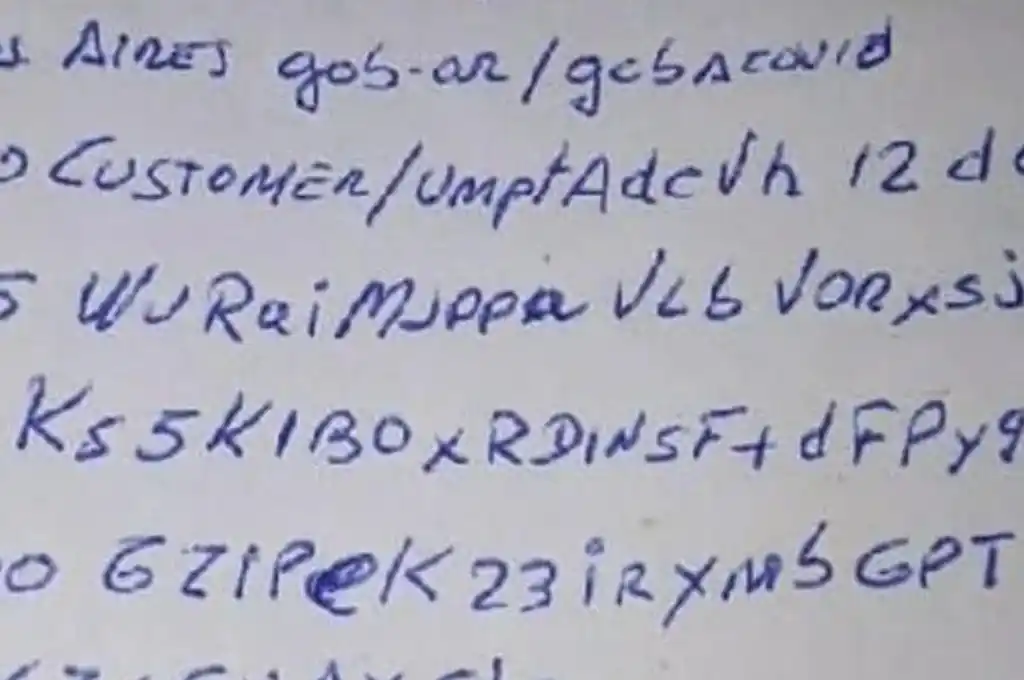 s AIRES gob.ar/gcbAcovid
o CUSTOMER/UmptAdcVh 12 d
5 WJRaiMJppa VLb VORxsj
Ks5K1BOxRDINSF+dFPy9
o GZIPeK23iRXmbGPT